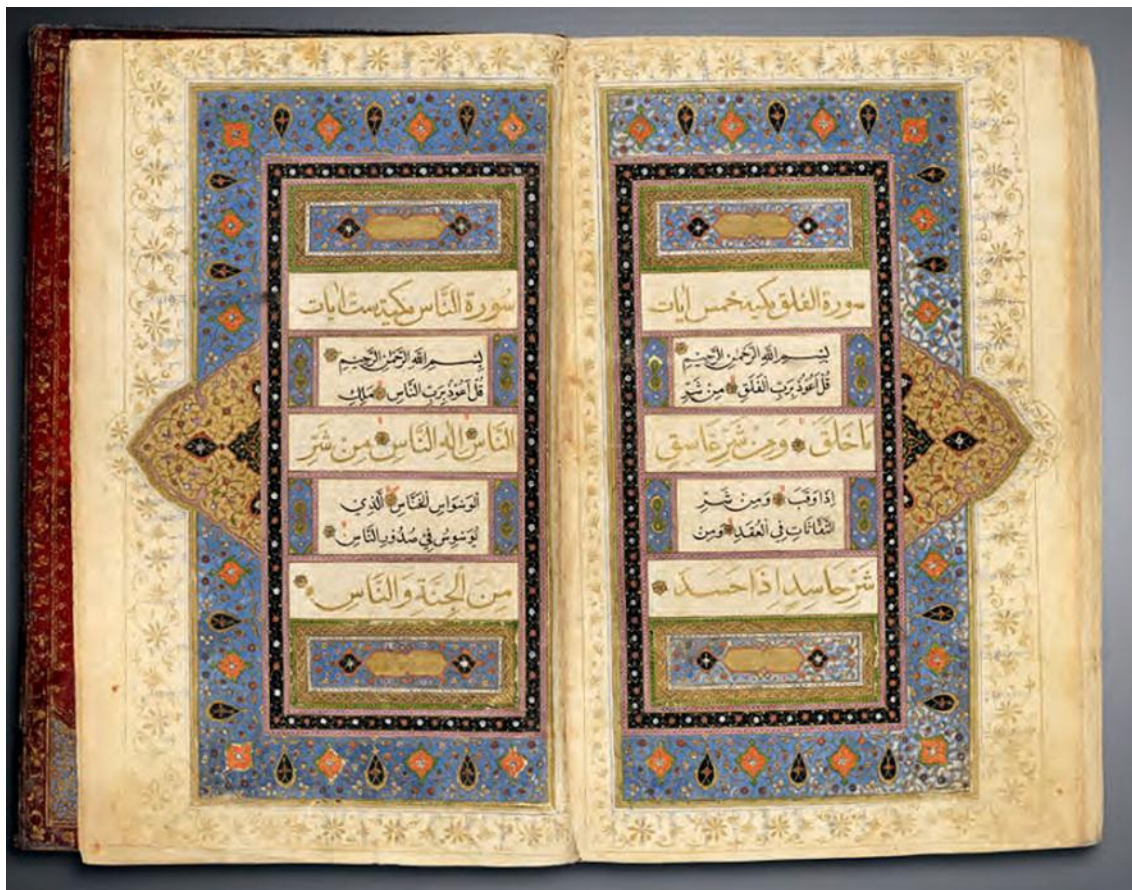 سورة الفلق مكية خمس ايات
بِسْمِ اللّٰهِ الرَّحْمٰنِ الرَّحِيمِ
قُلْ اَعُوذُ بِرَبِّ الْفَلَقِ مِنْ شَرِّ
مَا خَلَقَ وَمِنْ شَرِّ غَاسِقٍ
اِذَا وَقَبَ وَمِنْ شَرِّ
النَّفَّاثَاتِ فِي الْعُقَدِ وَمِنْ
شَرِّ حَاسِدٍ اِذَا حَسَدَ
سُورة النَّاس مكية ست ايات
بِسْمِ اللّٰهِ الرَّحْمٰنِ الرَّحِيمِ
قُلْ اَعُوذُ بِرَبِّ النَّاسِ مَلِكِ
النَّاسِ اِلٰهِ النَّاسِ مِنْ شَرِّ
الْوَسْوَاسِ الْخَنَّاسِ الَّذِي
يُوَسْوِسُ فِي صُدُورِ النَّاسِ
مِنَ الْجِنَّةِ وَالنَّاسِ